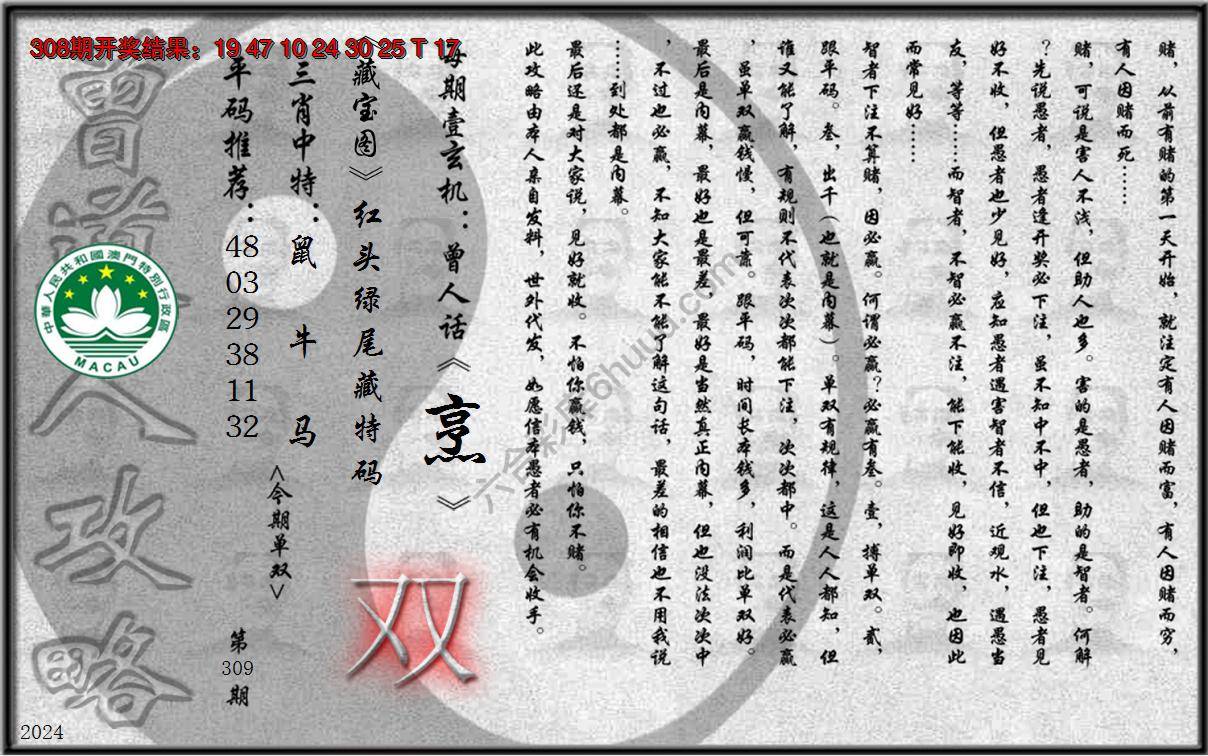 308期开奖结果：19 47 10 24 30 25 T 17
赌，从前有赌的第一天开始，就注定有人因赌而富，有人因赌而穷，
有人因赌而死……
赌，可说是害人不浅，但助人也多。害的是愚者，助的是智者。何解
？先说愚者，愚者逢开奖必下注，虽不知中不中，但也下注，愚者见
好不收，但愚者也少见好，应知愚者遇害智者不信，近观水，遇愚当
友，等等……而智者，不智必赢不注，能下能收，见好即收，也因此
而常见好……
智者下注不算赌，因必赢。何谓必赢？必赢有叁。壹，搏单双。贰，
跟平码。叁，出千（也就是内幕）。单双有规律，这是人人都知，但
谁又能了解，有规则不代表次次都能下注，次次都中。而是代表必赢
，虽单双赢钱慢，但可靠。跟平码，时间长本钱多，利润比单双好。
最后是内幕，最好也是最差，最好是当然真正内幕，但也没法次次中
，不过也必赢，不知大家能不能了解这句话，最差的相信也不用我说
……到处都是内幕。
最后还是对大家说，见好就收。不怕你赢钱，只怕你不赌。
此攻略由本人亲自发料，世外代发，如愿信本愚者必有机会收手。
每期壹玄机：曾人话《烹》
《藏宝图》红头绿尾藏特码
三肖中特：鼠 牛 马
平码推荐：48 03 29 38 11 32
<今期单双>
双
第309期
曾道人攻略
中華人民共和國澳門特別行政區
MACAU
六合彩库6huuu.com
2024